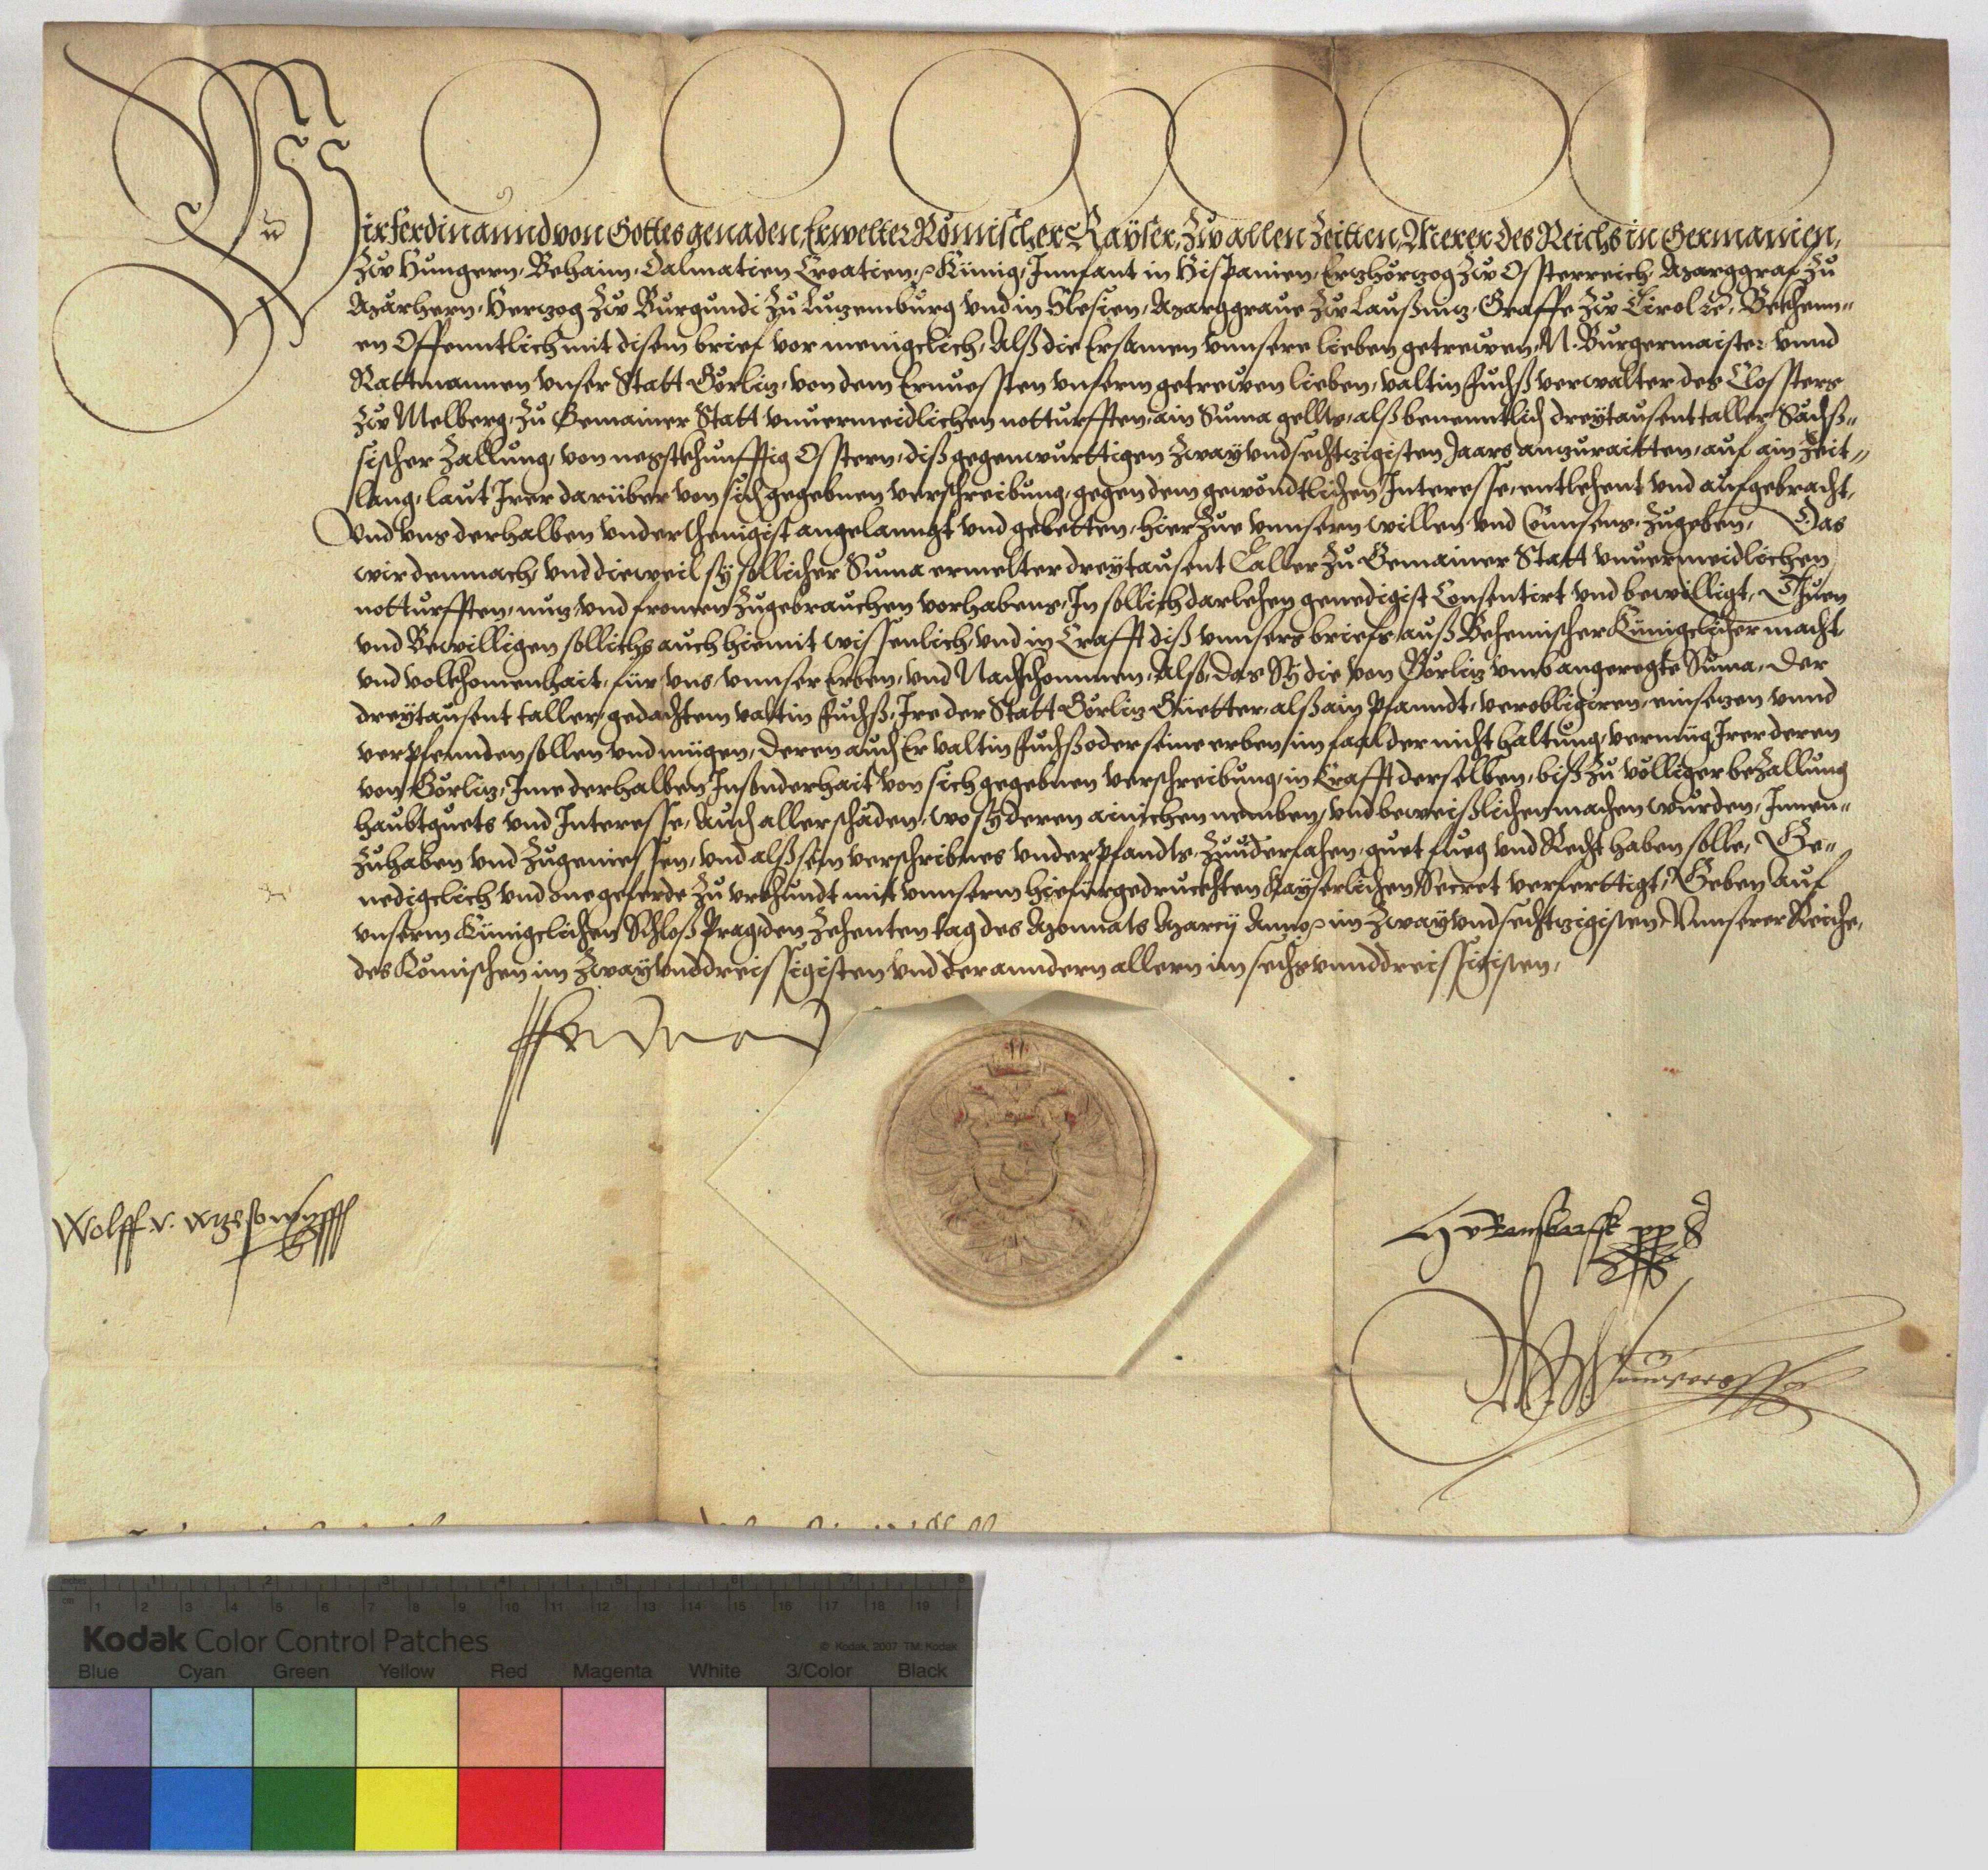 Wir Ferdinannd von Gottes genaden, Erwelter Römischer Kayser, Zw allen Zeitten, Merer des Reichs in Germanien,
Zw Hungern, Behaim, Dalmatien Croatien, Künig, Innfant in Hispanien, Ertzhörtzog Zw Össterreich Marggraf zu
Märhern, Hertzog Zw Burgundi Zu Lutzemburg vnd in Slesien, Marggraue Zw Laußnitz, Graffe Zw Tirol &c. Bekhenn„
en Offenntlich mit disem brief vor menigclich, Alß die Ersamen vnnsere lieben getrewen, N. Burgermaister vnnd
Rattmannen vnser Statt Görlitz, von dem Ernuessten vnserm getrewen lieben, valtin Fuchß verwalter des Clossters
Zw Melberg, Zu Gemainer Statt vnuermeidlichen notturfften, ain Suma gellts, alß benenntlich dreytausent taller Sachß„
sischer Zallung, von negstkhunfftig Osstern, diß gegenwürttigen Zway vnd sechtzigisten Jaars antzuraitten, auf ain Zeit„
lang, laut Irer darüber von sich gegebnen verschreibung, gegen dem gewöndtlichen Interesse, entlehent vnd aufgebracht,
Vnd vns derhalben vnderthenigist angelanngt vnd gebetten, hierZue vnnsern willen vnd Connsens, Zugeben, Das
wir demnach, vnd dieweil sy sollicher Suma ermelter dreytausent Taller Zu Gemainer Statt vnuermeidlichen
notturfften, nutz, vnd fromen Zugebrauchen vorhabens, In sollich darlehen genedigist Consentirt vnd bewilligt, Thuen
vnd Bewilligen sollichs auch hiemit wissenlich, vnd in Crafft diß vnnsers briefs, auß Behemischer Künigclicher macht
vnd volkhomenhait, für vns, vnnser Erben, vnd Nachkhommen, Also, das Sy die von Görlitz vmb angeregte Suma, der
dreytausent taller, gedachtem valtin Fuchß, Ire der Statt Görlitz Guetter, alß ain Pfanndt, verobligiren, einsetzen vnnd
verpfennden sollen vnd mügen, deren auch Er valtin Fuchß oder seine erben, im faal der nicht haltung, vermüg Irer deren
von Görlitz, Ime derhalben Insonderhait von sich gegebnen verschreibung, in Crafft derselben, biß Zu völliger beZallung
haubtguets vnd Interesse, Auch aller schäden, wo sy deren ainichen nemben, vnd beweißlichen machen wurden, Innen„
Zuhaben vnd Zugeniessen, vnd alß seim verschribnes vnderpfandts, guet fueg vnd Recht haben solle, Ge„
nedigclich vnd one geferde Zu vrkhundt mit vnnserm hiefürgedruckhten Kayserlichen Secret verferttigt, Geben auf
vnserm Künigclichen Schloß Prag, den Zehenten tag des Monnats Marcy Anno im Zway vnd sechtzigisten, Vnnserer Reiche,
des Römischen im Zway vnnd dreissigisten vnd der anndern allern im sechs vnnd dreissigisten,
Ferdinand
Wolff v. wrzesowytz